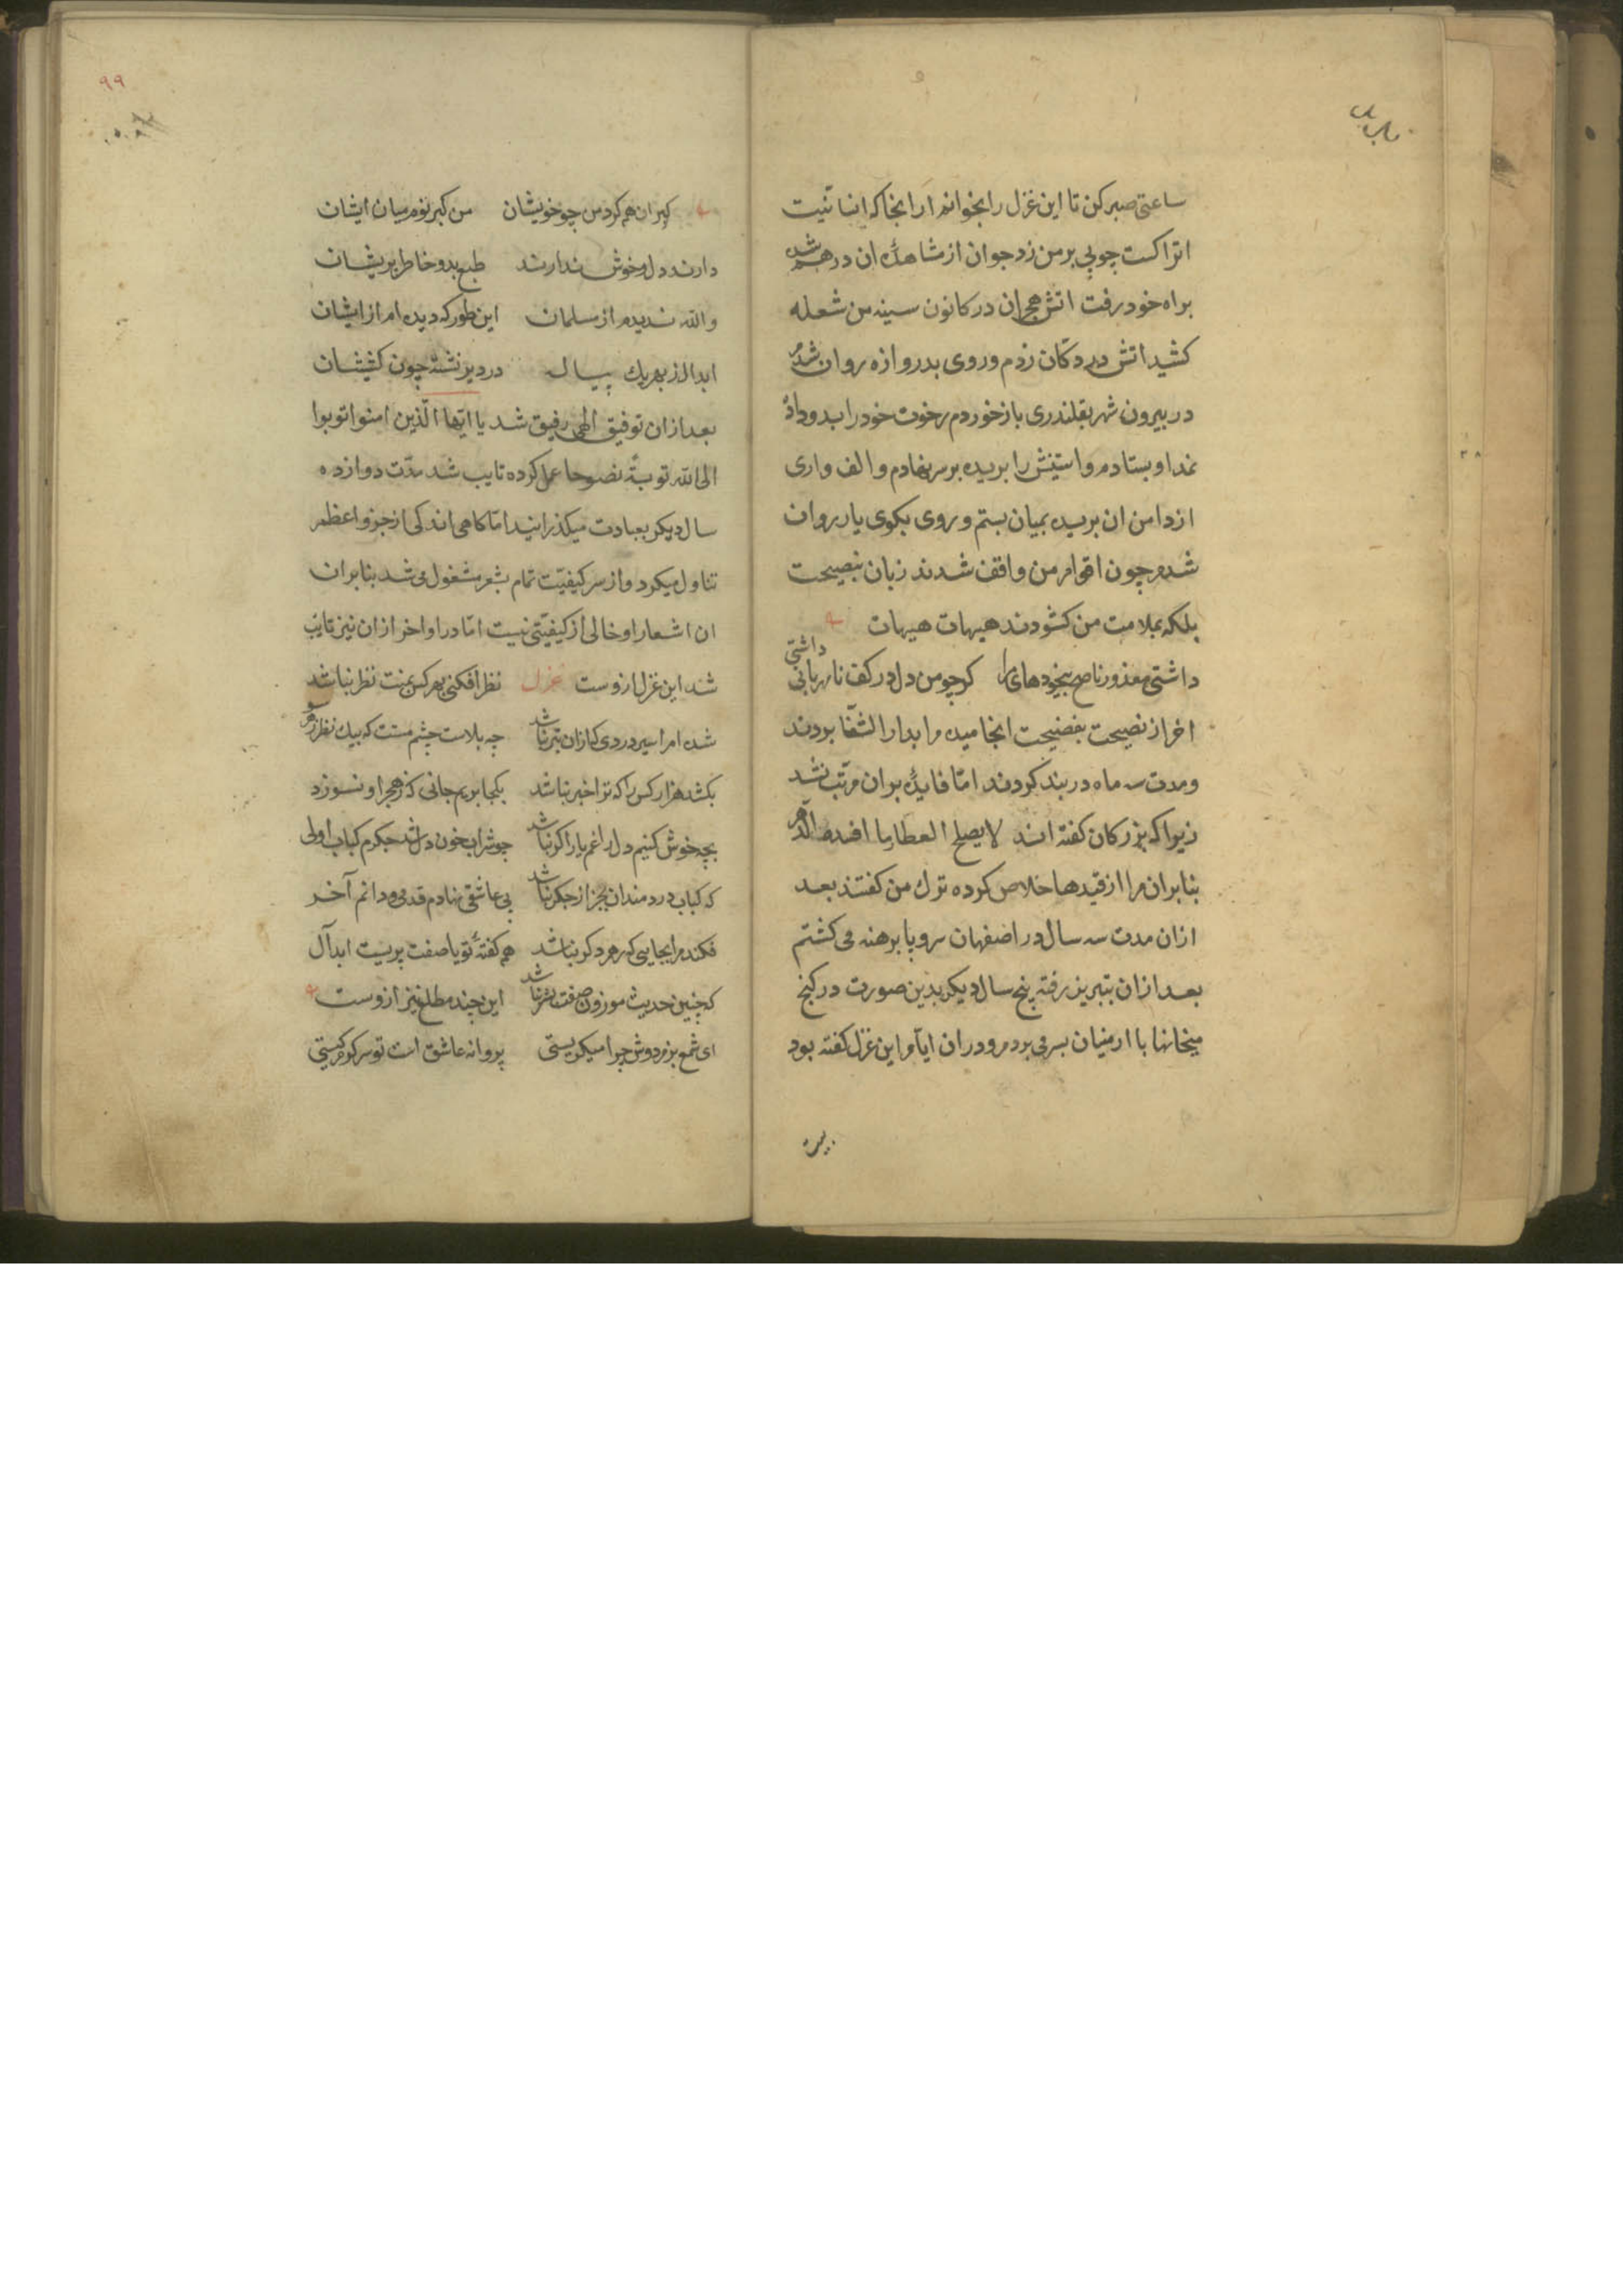 ساعتی صبر کن تا این غزل را بخوانم ار انجا که انسانیت
اتراکست چوبی بر من زد جوان از مشاهدهٔ ان درهم شد
براه خود رفت اتش هجران در کانون سینه من شعله
کشید اتش در دکان زدم و روی بدروازه روان شدم
در بیرون شهر بقلندری بازخوردم رخوت خود را بدو داد
نمد او بستادم و استینش را بریده بر سر نهادم و الف واری
از دامن ان بریده بمیان بستم و روی بکوی یار روان
شدم چون اقوام من واقف شدند زبان بنصیحت
بلکه بملامت من کشودند هیهات هیهات
داشتی معذور ناصح بیخودیهای مرا کر چو من دل در کف نامهربانی داشتی
اخر از نصیحت بفضیحت انجامیده مرا بدار الشفا بردند
و مدت سه ماه در بند کردند امّا فایدهٔ بران مرتّب نشد
زیرا که بزرکان کفته اند لا یصلح العطار ما افسده الدّهر
بنابران مرا از قیدها خلاص کرده ترک من کفتند بعد
ازان مدت سه سال در اصفهان سر و پا برهنه می کشتم
بعد ازان بتبریز رفته پنج سال دیکر بدین صورت در کنج
میخانها با ارمنیان بسر می بردم و دران ایّام این غزل کفته بود
بیت
۹۹
کبران همه کرد من چو خویشان من کبر نوم میان ایشان
دارند دل و خوش ندارند طبع بد و خاطر پریشان
والله ندیدم از مسلمان این طور که دیده ام از ایشان
ابدال ز بهر یک پیاله در دیر نشسته چون کشیشان
بعد ازان توفیق الهی رفیق شد یا ایّها الّذین امنوا توبوا
الی الله توبةً نصوحا عمل کرده تایب شد مدّت دوازده
سال دیکر بعبادت میکذرانید امّا کاهی اندکی از جزو اعظم
تناول میکرد و از سر کیفیّت تمام بشعر مشغول می شد بنابران
ان اشعار او خالی از کیفیّتی نیست امّا در اواخر ازان نیز تایب
شد این غزل ازوست غزل نظر افکنی بهر کس بمنت نظر نباشد
شده ام اسیر دردی که ازان بتر نباشد چه بلاست چشم مستت که بیک نظر ز هر سو
بکشد هزار کس را که ترا خبر نباشد بکجا بریم جانی که ز هجر او نسوزد
بچه خوش کنیم دل را غم یار اکر نباشد چو شراب خون دل شد جکرم کباب اولی
که کباب دردمندان بجز از جکر نباشد پی عاشقی نهادم قدمی و دانم آخر
فکند مرا بجایی که رهی دکر نباشد همه کفتهٔ تو با صفت پریست ابدال
که چنین حدیث موزون صفت بشر نباشد این چند مطلع نیز ازوست
ای شمع بزم دوش چرا میکریستی پروانه عاشق است تو سرکرم کیستی